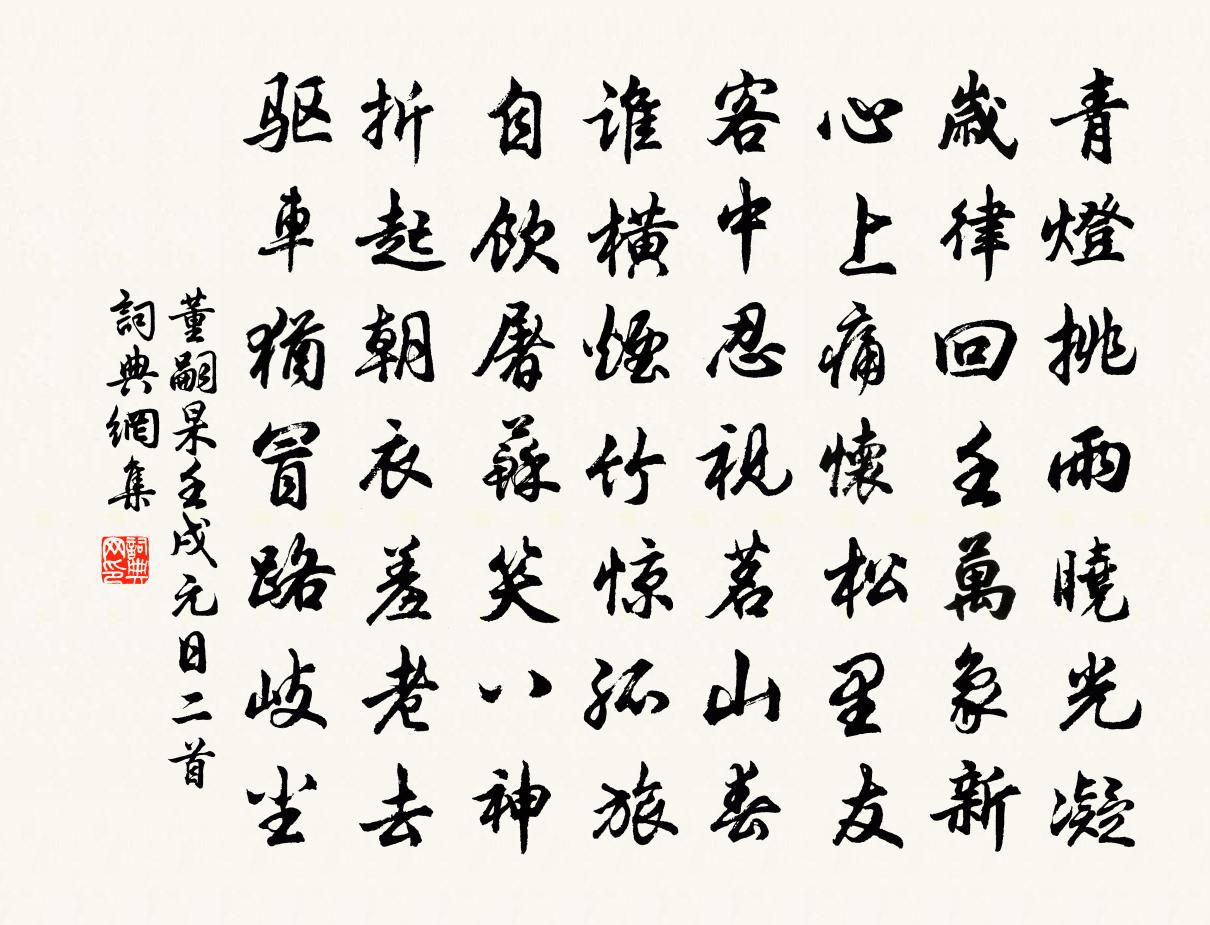 青燈挑雨曉光凝
歲律回壬萬象新
心上痛懷松里友
客中忍視茗山春
誰橫煙竹惊孤旅
自飲屠蘇笑八神
折起朝衣羞老去
驱車猶冒路岐尘
董嗣杲壬戌元日二首
詞典網集
詞典网印